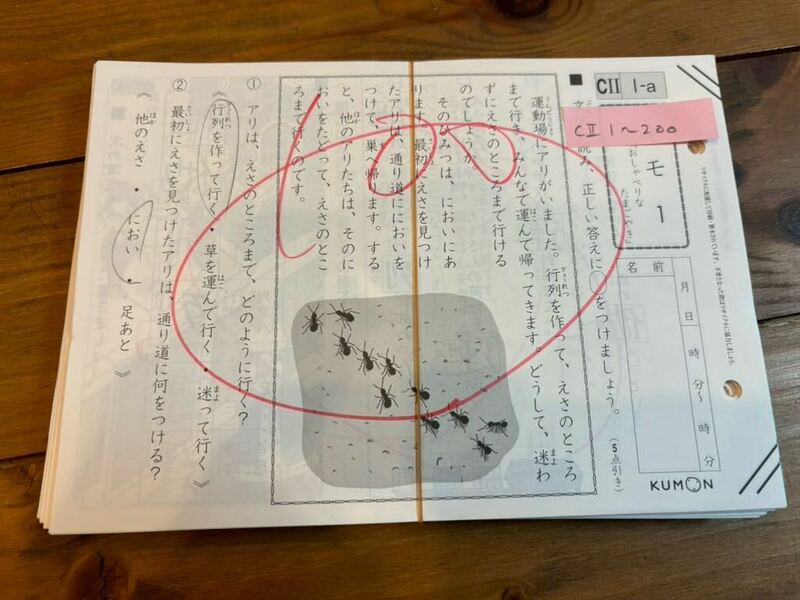 CII 1-a
CⅡ 1～200
モ1
おしゃべりな
たまごやき
名前
月 日
時 分～ 時 分
KUMON
読み、正しい答えに○をつけましょう。
(5点引き)
運動場にアリがいました。行列を作って、えさのところ
まで行き、みんなで運んで帰ってきます。どうして、迷わ
ずにえさのところまで行ける
のでしょうか。
そのひみつは、においにあ
ります。最初にえさを見つけ
たアリは、通り道ににおいを
つけて、巣へ帰ります。する
と、他のアリたちは、そのに
おいをたどって、えさのとこ
ろまで行くのです。
100
① アリは、えさのところまで、どのように行く？
《 行列を作って行く ・ 草を運んで行く ・ 迷って行く 》
② 最初にえさを見つけたアリは、通り道に何をつける？
《 他のえさ ・ におい ・ 足あと 》